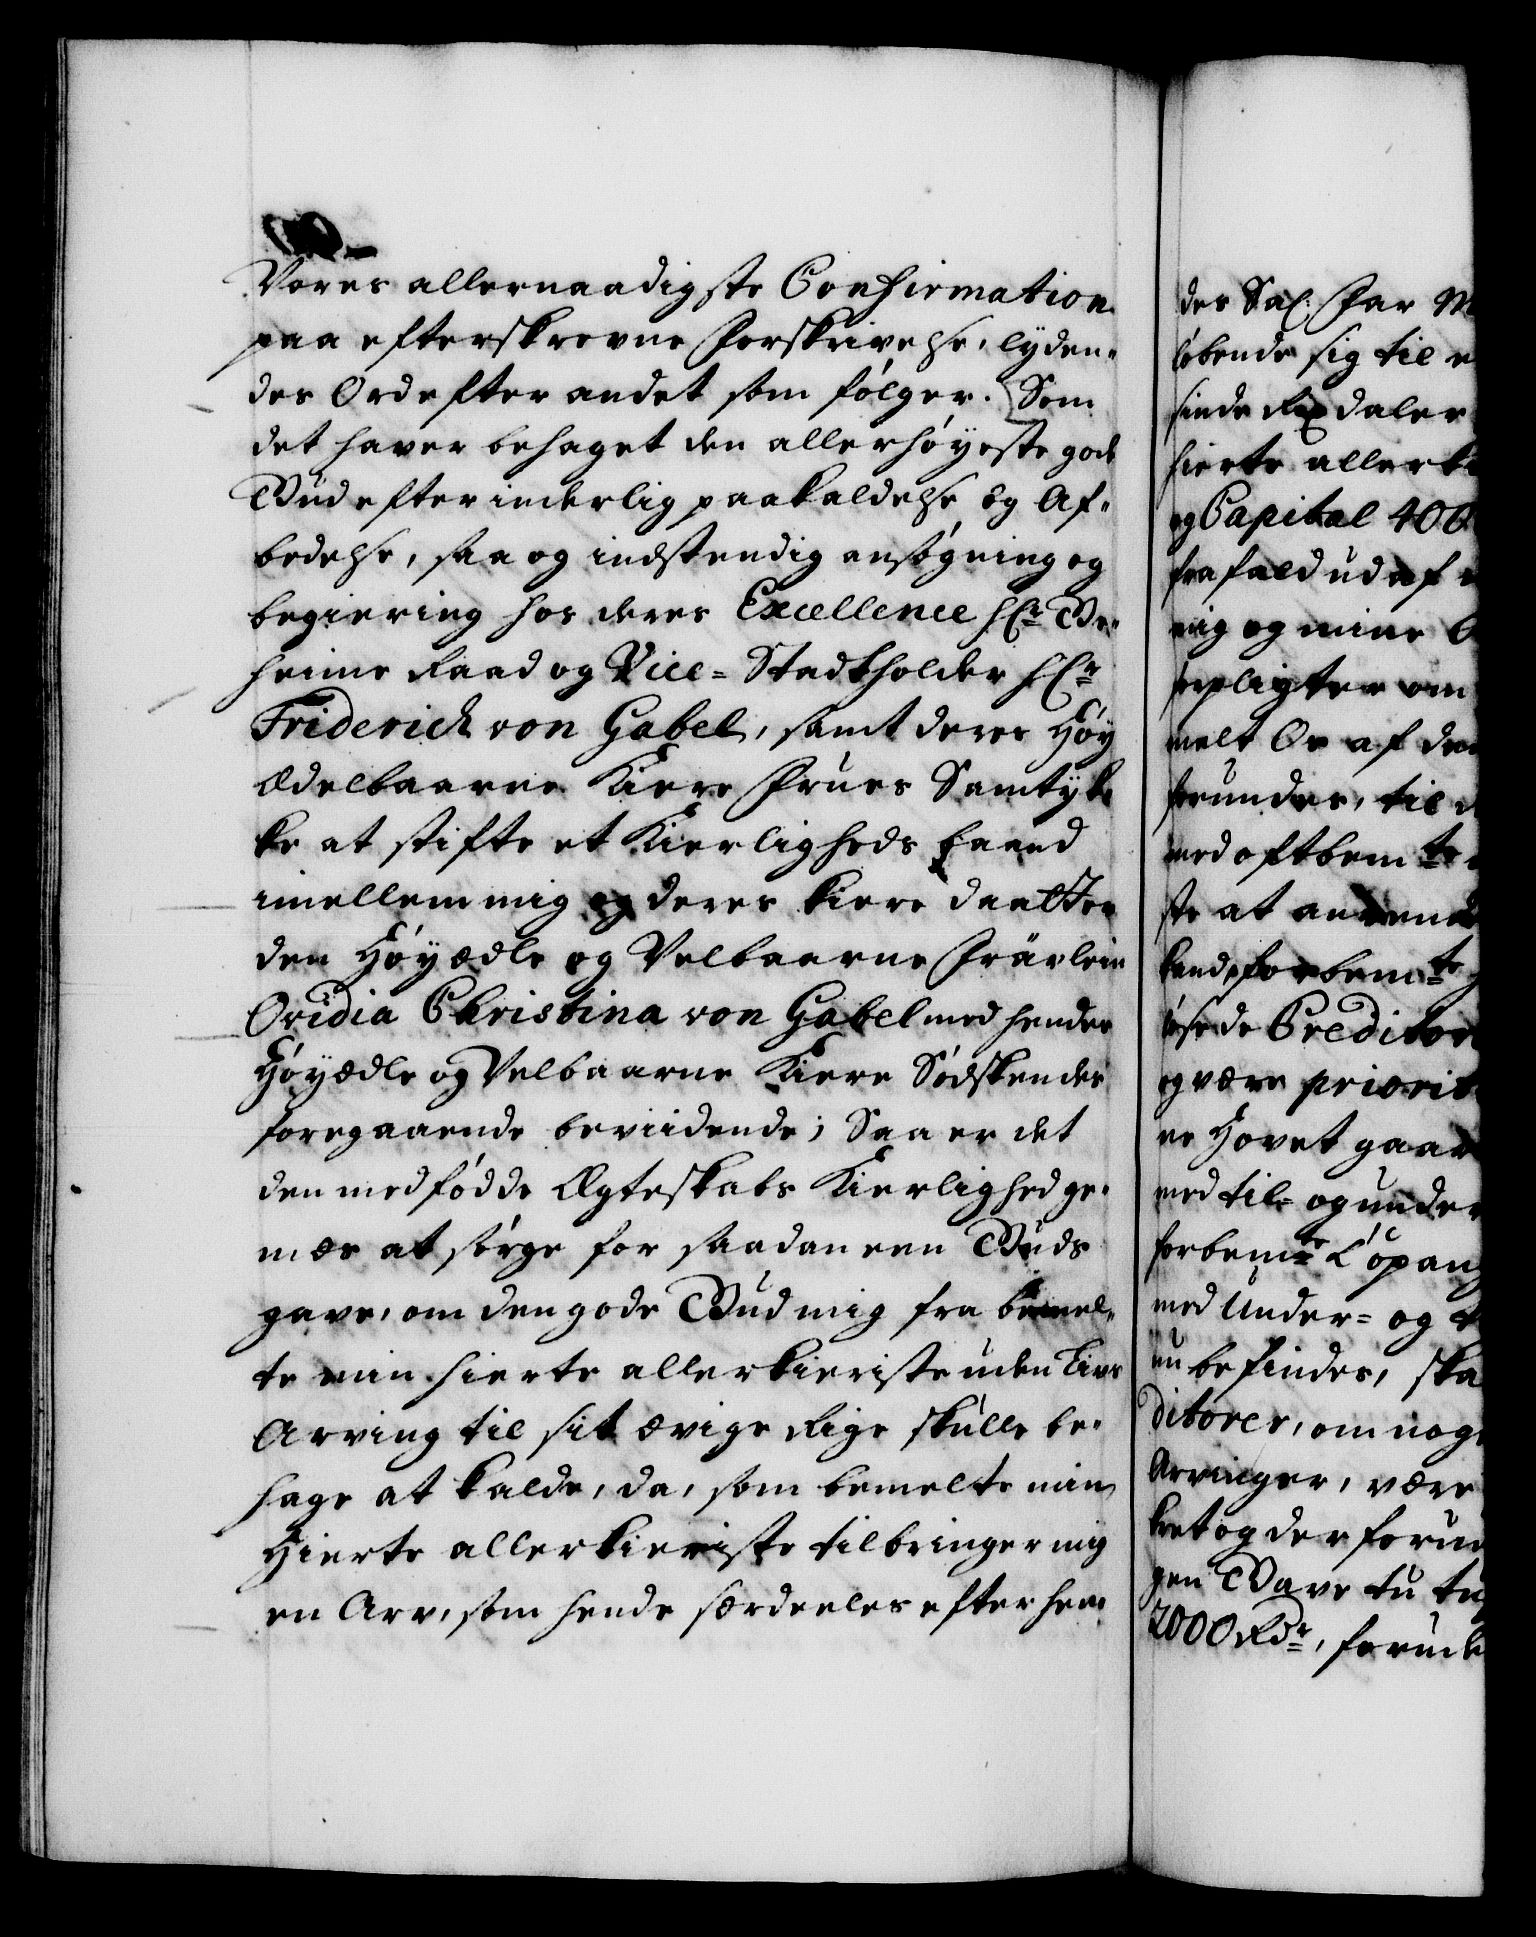 Vores allernaadigste Confirmation
paa efterskrevne Forskrivelse, lyden-
des Ord efter andet som følger. Som
det haver behaget den allerhøyeste gode
Gud efter inderlig paakaldelse og Af-
bedelse, saa og indstendig ansøgning og
begiering hos deres Excellence Hr. Ge-
heime Raad og Vice-Stadtholder Hr.
Friderich von Gabel, samt deres Høy
ædelbaarne Kiere Frues Samtyk-
ke at stifte et Kierligheds baand
imellem mig og deres kiere daatter
den Høyædle og Velbaarne Frävlein
Ovidia Christina von Gabel med hendes
Høyædle og Velbaarne Kiere Sødskendes
foregaaende beviidende; Saa er det
den medfødde Ægteskabs Kierlighed ge-
mæs at sørge for saadan een Guds
gave, om den gode Gud mig fra bemel-
te min hierte allerkieriste uden Livs
Arving til sit ævige Rige skulle be-
hage at kalde, da, som bemelte min
Hierte allerkieriste tilbringer mig
en Arv, som hende særdeeles efter hen-
des Sal. Far M
løbende sig til
sinde Rixdaler
hierte allerki
og Capital 400
frafald ud af
mig og mine
forpligter
melt Os af
forundes, til
med oftbemte
ste at anvende
kand, forbemte
løse de Creditor
og være priorit
re Hovet gaar
med til- og under
forbemte Löpang
med Under- og
nu befindes, ska
ditorer, om nog
Arvinger, være
ket og der foru
gen Gave tu tu
2000 Rdr., foru